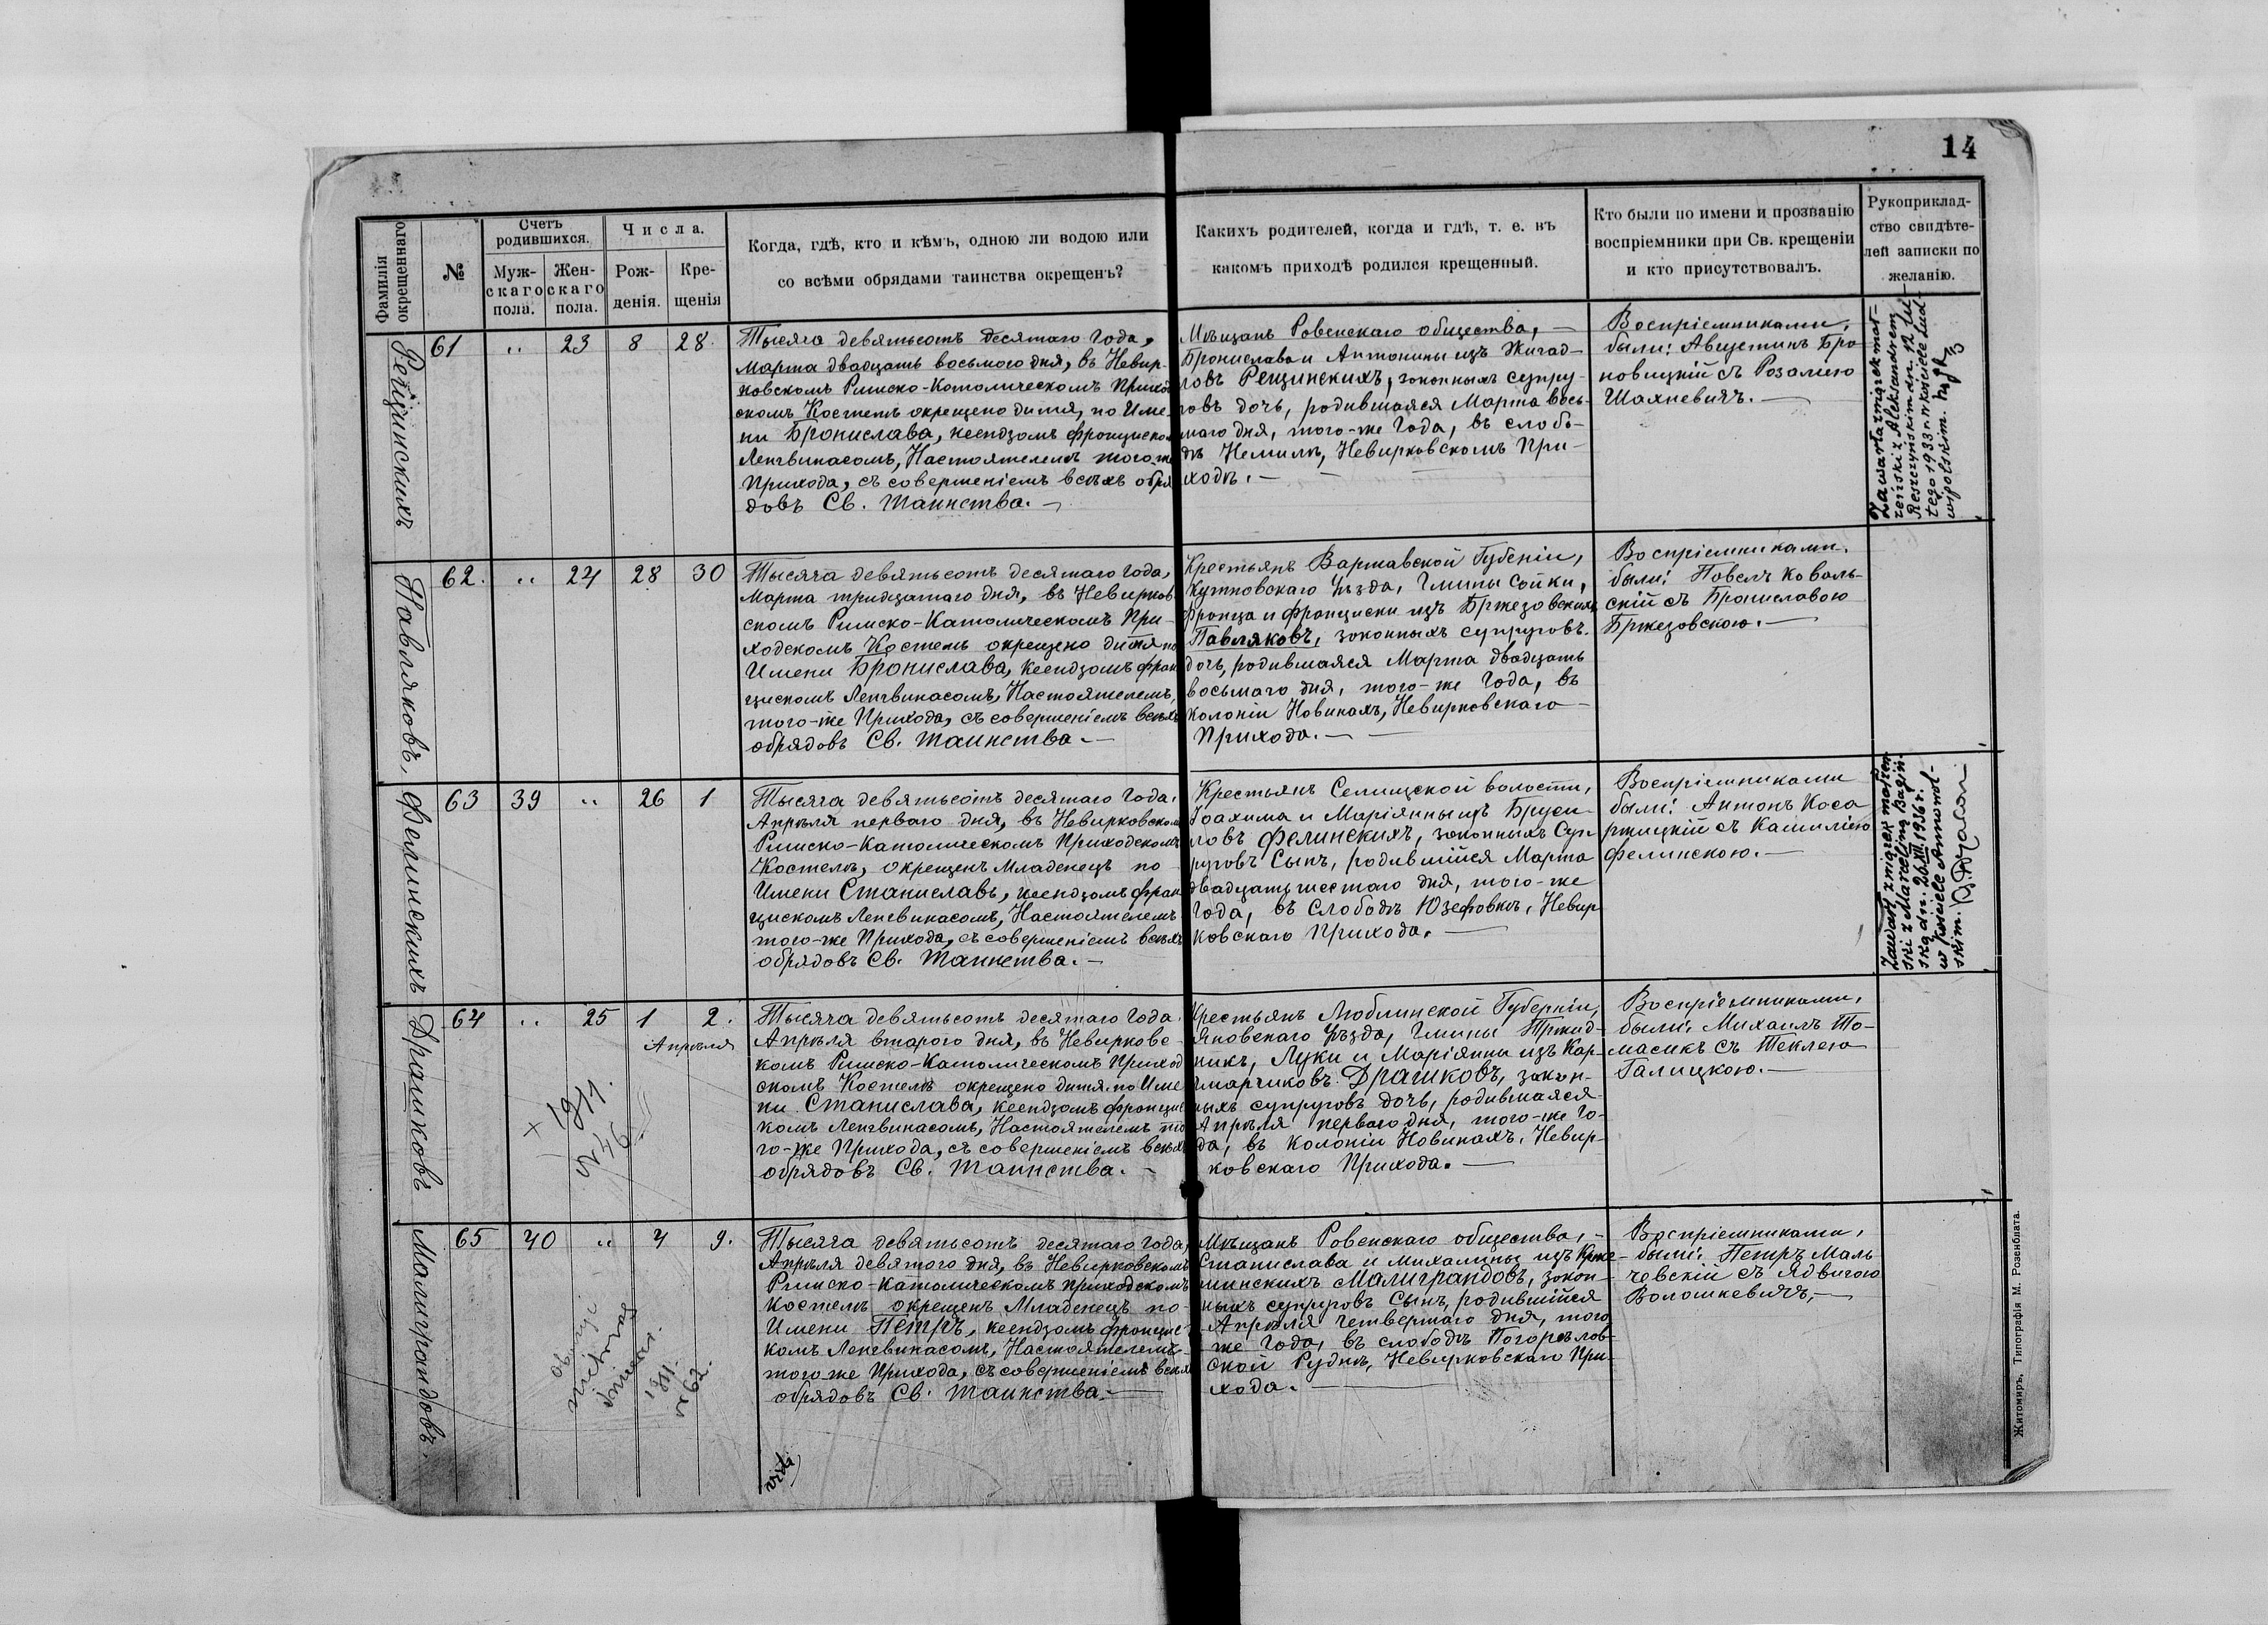 14
Фамилія
окрещеннаго
№
Счетъ
родившихся.
Муж-
скаго
пола.
Жен-
скаго
пола.
Числа.
Рож-
денія.
Кре-
щенія
Когда, гдѣ, кто и кѣмъ, одною ли водою или
со всѣми обрядами таинства окрещенъ?
Какихъ родителей, когда и гдѣ, т. е. въ
какомъ приходѣ родился крещенный.
Кто были по имени и прозванію
воспріемники при Св. крещеніи
и кто присутствовалъ.
Рукоприклад-
ство свидѣте-
лей записки по
желанію.
Рещинскихъ
61 " 23 8 28.
Тысяча девятьсотъ десятаго года,
Марта двадцать восьмого дня, въ Невир-
ковскомъ Римско-Католическомъ Приход
скомъ Костелѣ окрещено дитя, по Име-
ни Бронислава, ксендзомъ Францискомъ
Ленгвинасомъ, Настоятелемъ того-же
Прихода, съ совершеніемъ всѣхъ обря
довъ Св. Таинства.
Мѣщанъ Ровенскаго общества,
Бронислава и Антонины изъ Жигад-
ловъ Рещинскихъ, законныхъ супру-
говъ дочь, родившаяся Марта вось-
маго дня, того-же Года, въ слобо-
дѣ Немилѣ, Невирковскомъ При-
ходѣ.
Воспріемниками,
были: Августинъ Бро
новицкій съ Розаліею
Шахневичъ.
Zawarła związek mał-
żeński z Aleksandrem
Reszczyńskim dn. 12 lu-
tego 1933 r. w kościele Lud-
wipolskim.
Павляковъ,
62. " 24 28 30
Тысяча девятьсотъ десятаго года,
Марта тридцатаго дня, въ Невирков
скомъ Римско-Католическомъ При-
ходскомъ Костелѣ окрещено дитя по
Имени Бронислава, ксендзомъ Фран
цискомъ Ленгвинасомъ, Настоятелемъ,
того-же Прихода, съ совершеніемъ всѣхъ
обрядовъ Св. Таинства.
Крестьянъ Варшавской Губеніи,
Кутновскаго Уѣзда, Гмины Сойки,
Франца и Франциски изъ Бржезовскихъ
Павляковъ, законныхъ супруговъ.
дочь, родившаяся Марта двадцать
восьмаго дня, того-же Года, въ
колоніи Новинахъ, Невирковскаго
Прихода.
Воспріемниками.
были: Павелъ Коваль-
скій съ Брониславою
Бржезовскою.
Фелинскихъ
63 39 " 26 1
Тысяча девятьсотъ десятаго года,
Апрѣля перваго дня, въ Невирковскомъ
Римско-Католическомъ Приходскомъ
Костелѣ, окрещенъ Младенецъ по
Имени Станиславъ, ксендзомъ Фран
цискомъ Ленгвинасомъ, Настоятелемъ
того-же Прихода, съ совершеніемъ всѣхъ
обрядовъ Св. Таинства.
Крестьянъ Селищской волости,
Іоахима и Маріянны изъ Бруси-
ловъ Фелинскихъ, законныхъ Суп
руговъ Сынъ, родившійся Марта
двадцать шестого дня, того-же
Года, въ Слободѣ Юзефовкѣ, Невир
ковскаго Прихода.
Воспріемниками
были: Антонъ Коса
ржицкій съ Камиліею
Фелинскою.
Zawarł związek małżeń-
ski z Marceliną Bagiń-
ską dn. 26.XII.1936 r.
w kościele Antonol-
skim.
Драшковъ
64 " 25 1 2.
Апрѣля
Тысяча девятьсотъ десятаго года
Апрѣля второго дня, въ Невирковс-
комъ Римско-Католическомъ Приход
скомъ Костелѣ окрещено дитя по Име
ни Станислава, ксендзомъ Францис
комъ Ленгвинасомъ, Настоятелемъ то
го-же Прихода, съ совершеніемъ всѣхъ
обрядовъ Св. Таинства.
Крестьянъ Люблинской Губерніи,
Яновскаго Уѣзда, Гмины Тржид-
никъ, Луки и Маріянны изъ Кар-
чмарчиковъ Драшковъ, закон-
ныхъ супруговъ дочь, родившаяся
Апрѣля перваго дня, того-же Го-
да, въ колоніи Новинахъ, Невир-
ковскаго Прихода.
Воспріемниками,
были: Михаилъ То-
масикъ съ Теклею
Галицкою.
Малиграндовъ.
65 40 " 4 9.
Тысяча девятьсотъ десятаго года,
Апрѣля девятого дня, въ Невирковскомъ
Римско-Католическомъ приходскомъ
Костелѣ окрещенъ Младенецъ по
Имени Петръ, ксендзомъ Францис
комъ Ленгвинасомъ, Настоятелемъ
того же Прихода, съ совершеніемъ всѣхъ
обрядовъ Св. Таинства.
Мѣщанъ Ровенскаго общества,
Станислава и Михалины изъ Крже-
минскихъ Малиграндовъ, закон-
ныхъ супруговъ Сынъ, родившійся
Апрѣля четвертаго дня, того
же Года, въ слободѣ Погорѣлов-
ской Руднѣ, Невирковскаго При-
хода.
Воспріемниками,
были: Петръ Маль
чевскій съ Ядвигою
Волошкевичъ,
Житомиръ, Типографія М. Розенблата.